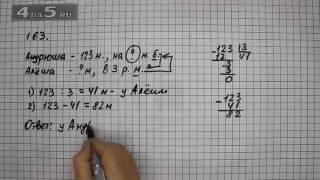 4ДА5.RU
163.
Андрюша - 123 м., на ? м. б.
Алёша - ? м., в 3 р. м.
1) 123 : 3 = 41 м - у Алёши
2) 123 - 41 = 82 м
Ответ: у Анд
123 3
12 41
3
3
0
123
41
82